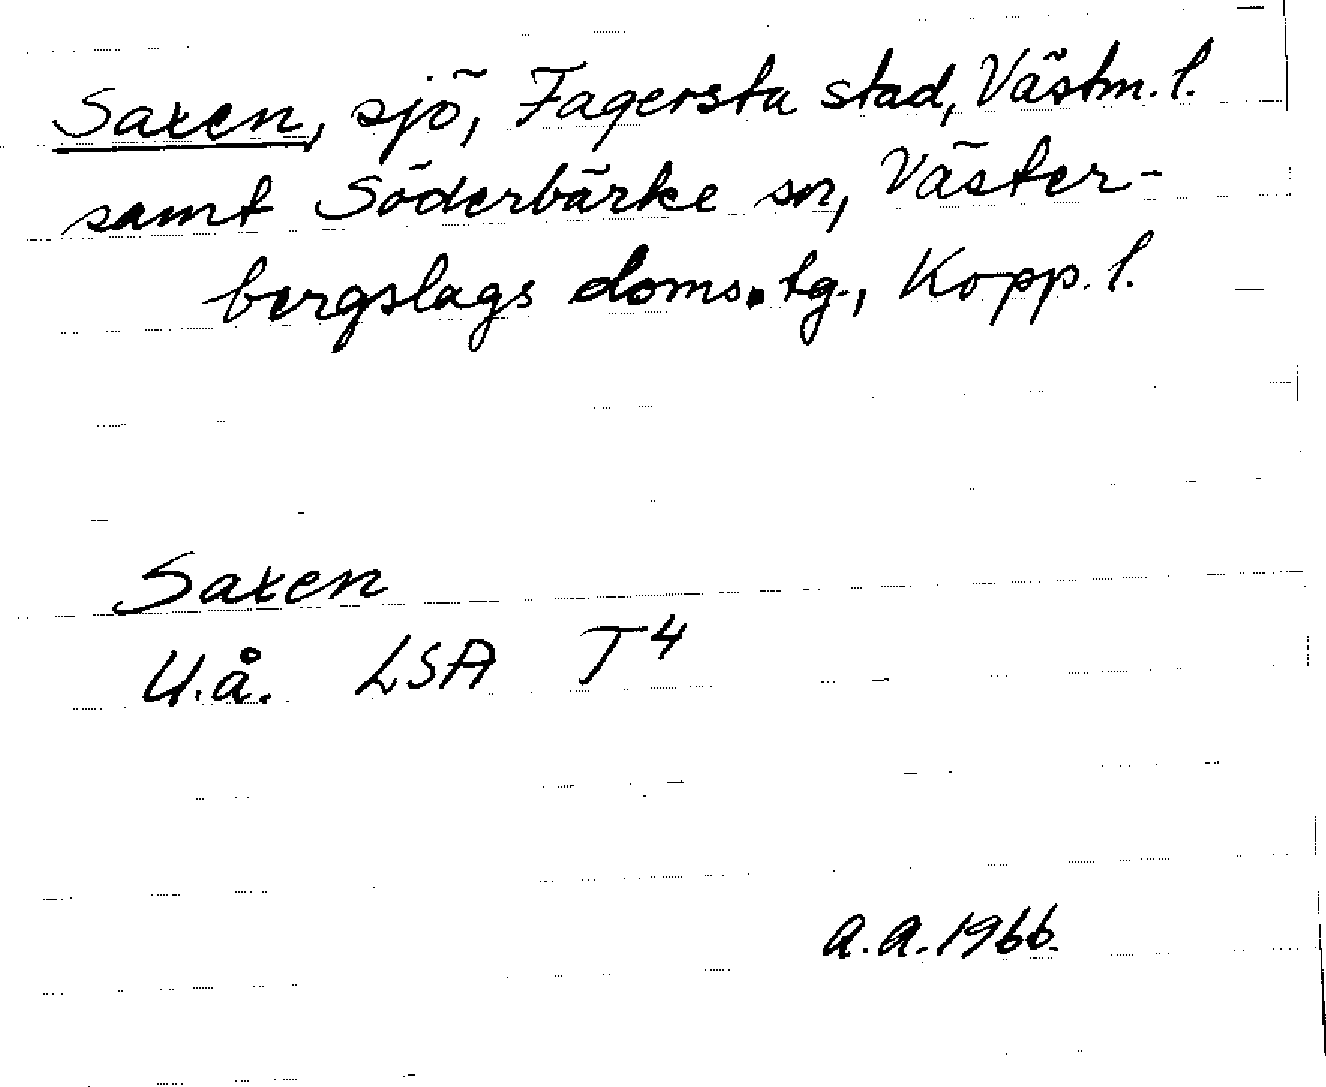 Saxen, sjö, Fagersta stad, Västm. l.
samt Söderbärke sn, Väster-
bergslags doms. tg., Kopp. l.
Saxen
U.å. LSA T4
A.A. 1966.